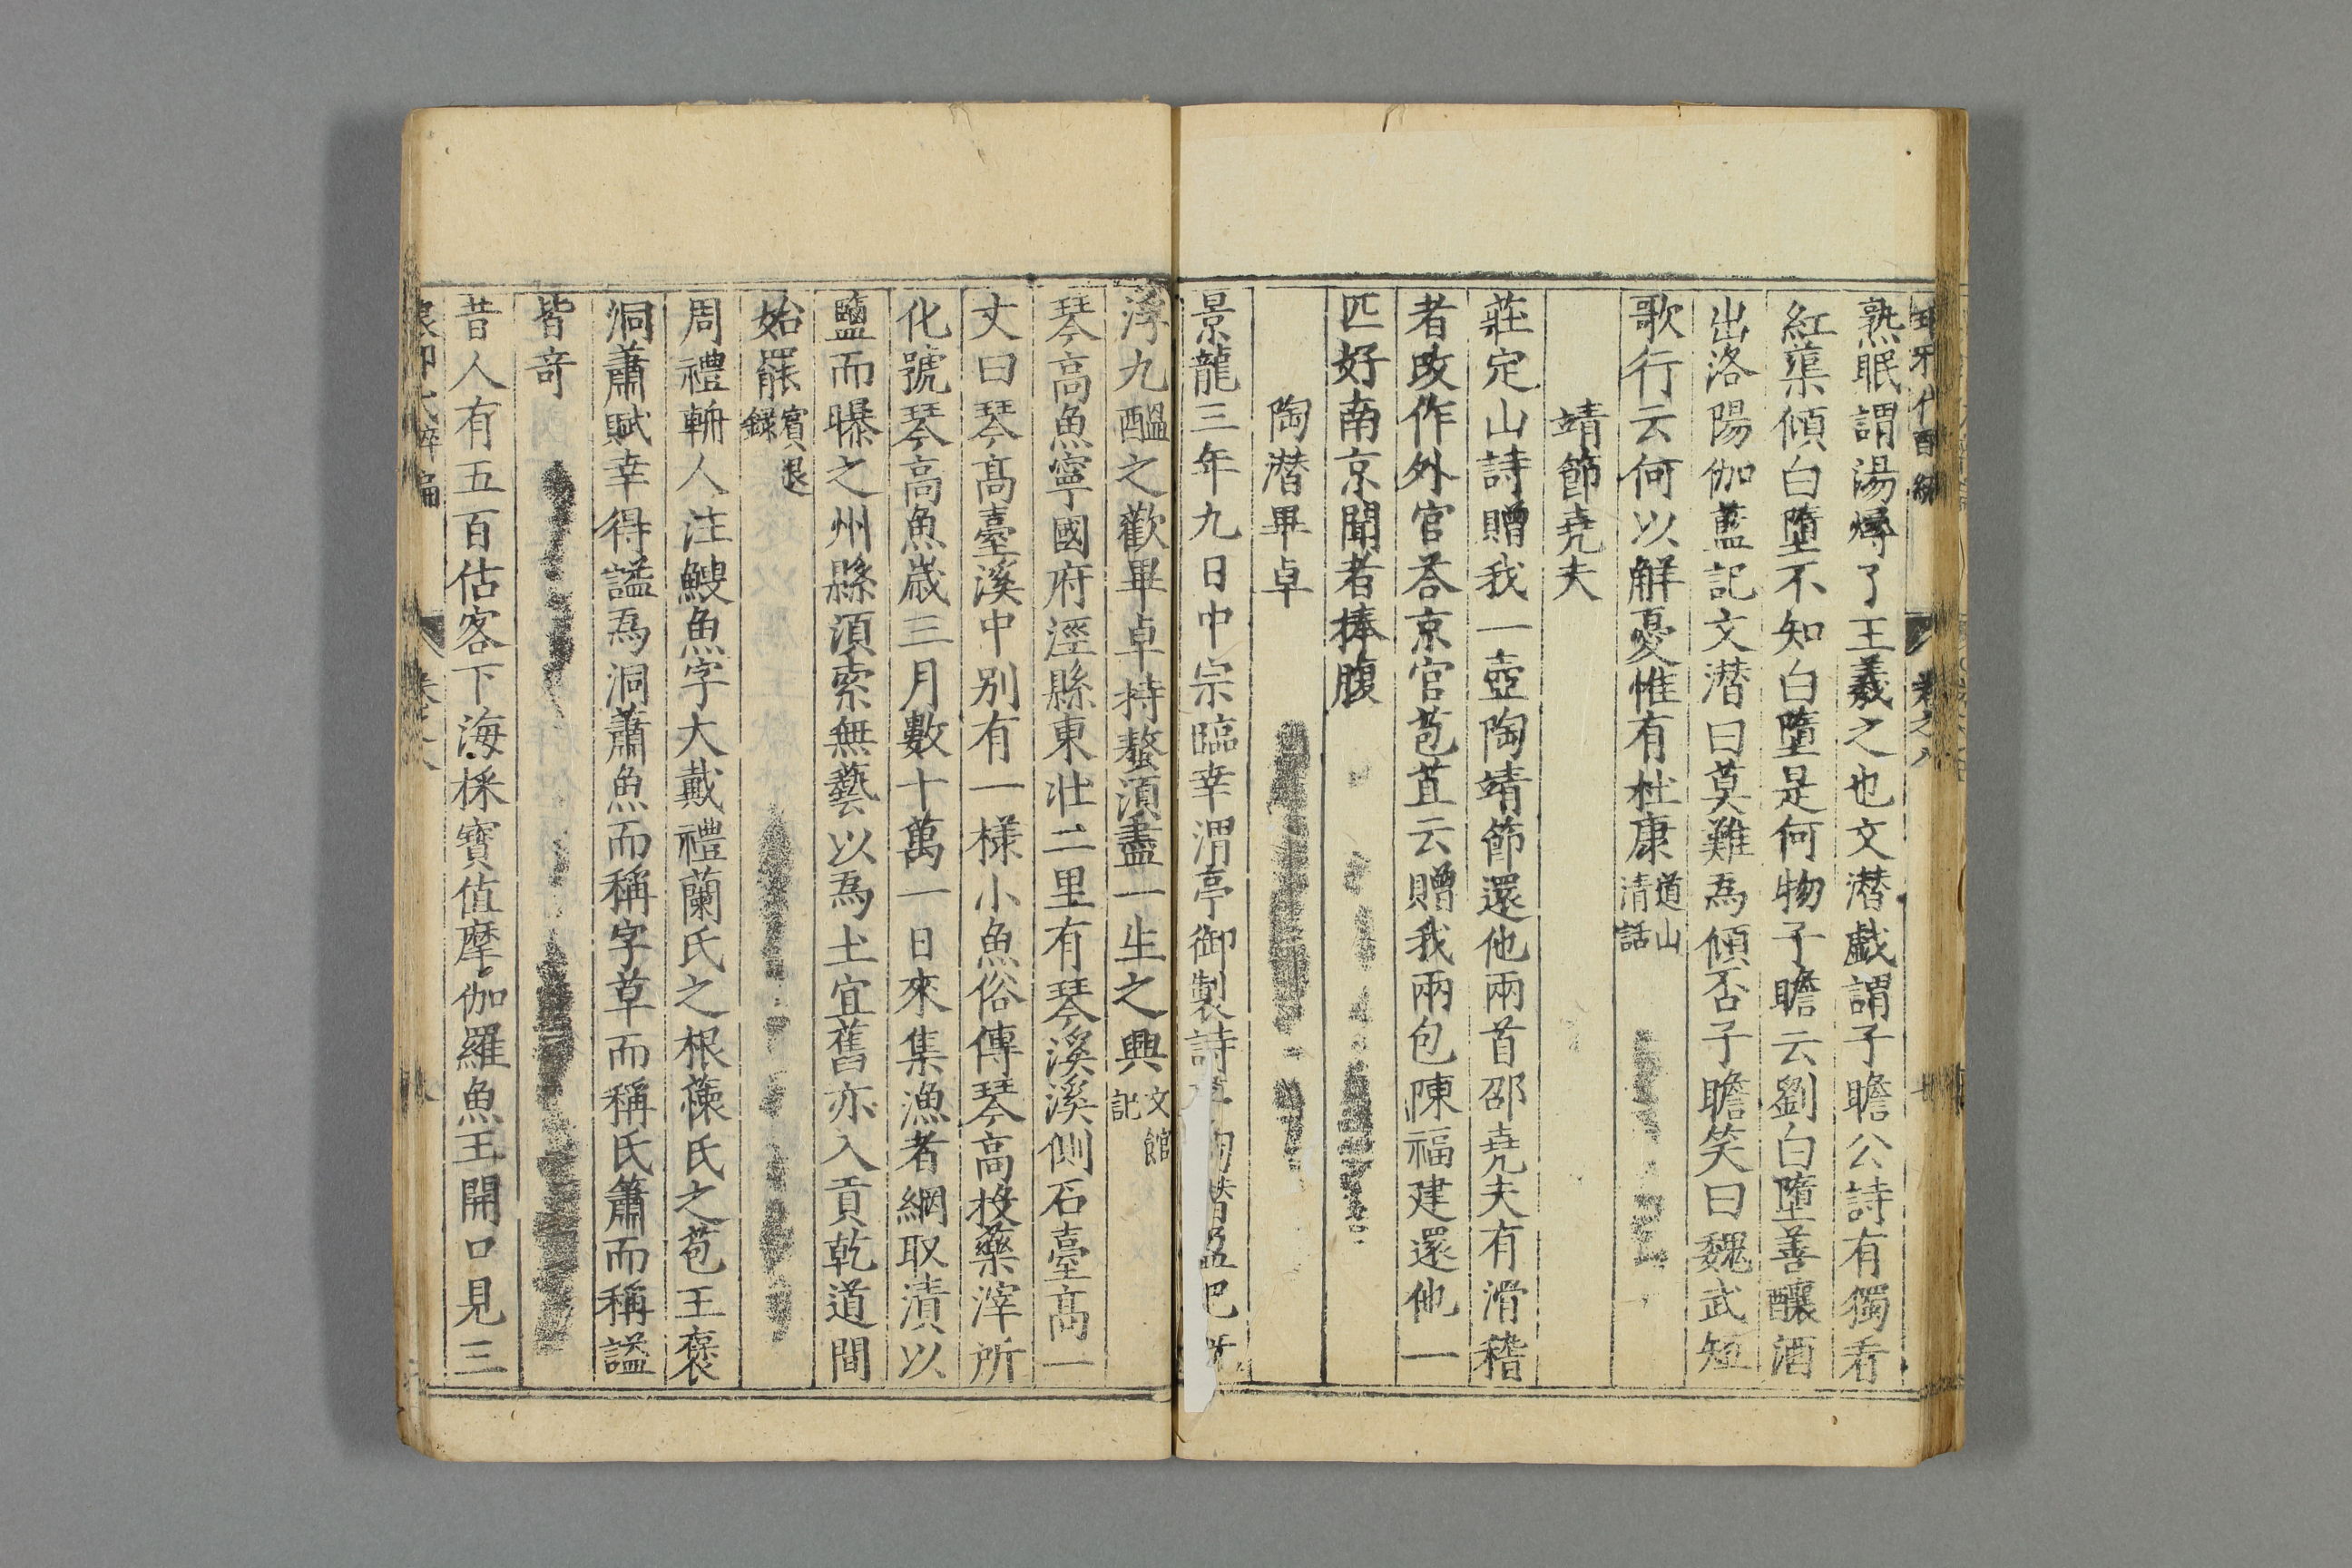 卷之八
熟眠謂湯燖了王羲之也文潜戱謂子瞻公詩有獨看
紅蕖傾白墮不知白墮是何物子瞻云劉白墮善釀酒
出洛陽伽藍記文潜曰莫難爲傾否子瞻笑曰魏武短
歌行云何以觧憂惟有杜康道山清話
靖節尭夫
莊定山詩贈我一壺陶靖節還他兩首邵尭夫有滑稽
者改作外官荅京官苞苴云贈我兩包陳福建還他一
匹好南京聞者捧腹
陶潜畢卓
景龍三年九日中宗臨幸渭亭御製詩陶潜盈把
浮九醖之歡畢卓持螯須盡一生之興文館記
琴高魚寧國府涇縣東北二里有琴溪溪側石臺高一
丈曰琴髙臺溪中别有一樣小魚俗傳琴高投藥滓所
化號琴高魚歳三月數十萬一日來集漁者網取漬以
鹽而曝之州縣須索無藝以爲土宜舊亦入貢乾道間
始罷賓退錄
周禮輈人注鰻魚字大戴禮蘭氏之根蘹氏之苞王褒
洞蕭賦幸得謚爲洞蕭魚而稱字草而稱氏簫而稱謚
皆竒
昔人有五百估客下海採寳值摩伽羅魚王開口見三